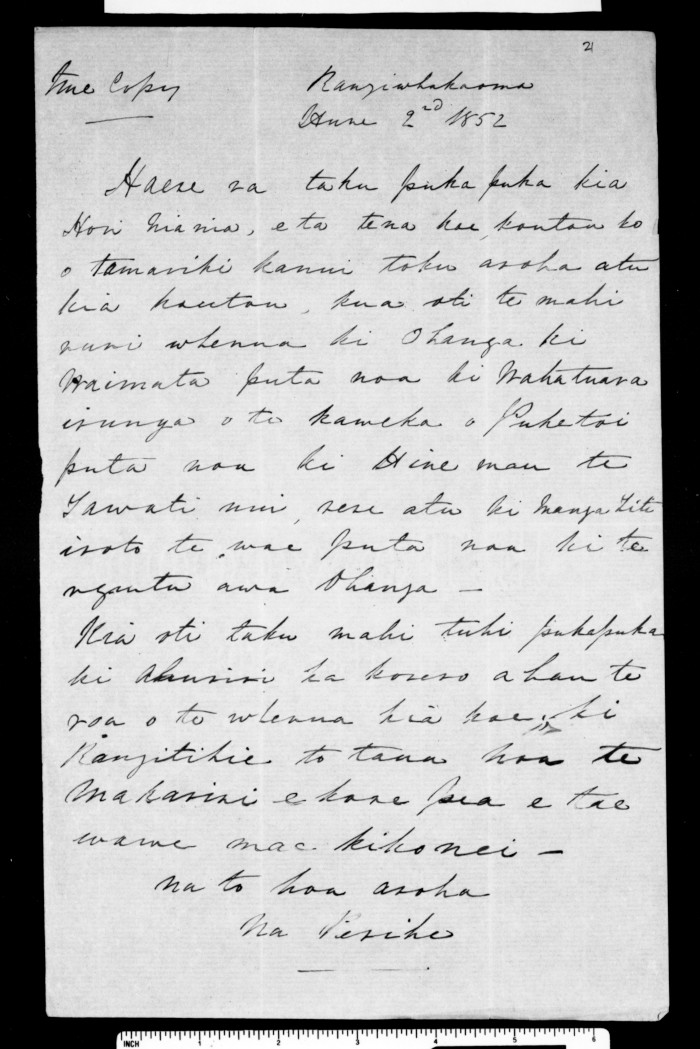 21
True Copy
Rangiwhakaoma
Hune 2nd 1852
Haere ra taku pukapuka kia
Hori Niania, e ta tena koe, koutou ko
o tamariki kanui toku aroha atu
kia koutou, kua oti te mahi
ruri whenua ki Ohanga ki
Waimata puta noa ki Wahatuara
irunga o te kaweka o Puketoi
puta noa ki Hine mau te
Tawati nui, rere atu ki Manga Tite
iroto te wae puta noa ki te
ngutu awa Ohanga —
Kia oti taku mahi tuhi pukapuka
ki Ahuriri ka korero ahau te
roa o te whenua kia koe, ki
Rangitihie to taua hoa te
Makarini ekore pea e tae
wawe mac kikonei —
na to hoa aroha
Na
INCH 1 2 3 4 5 6